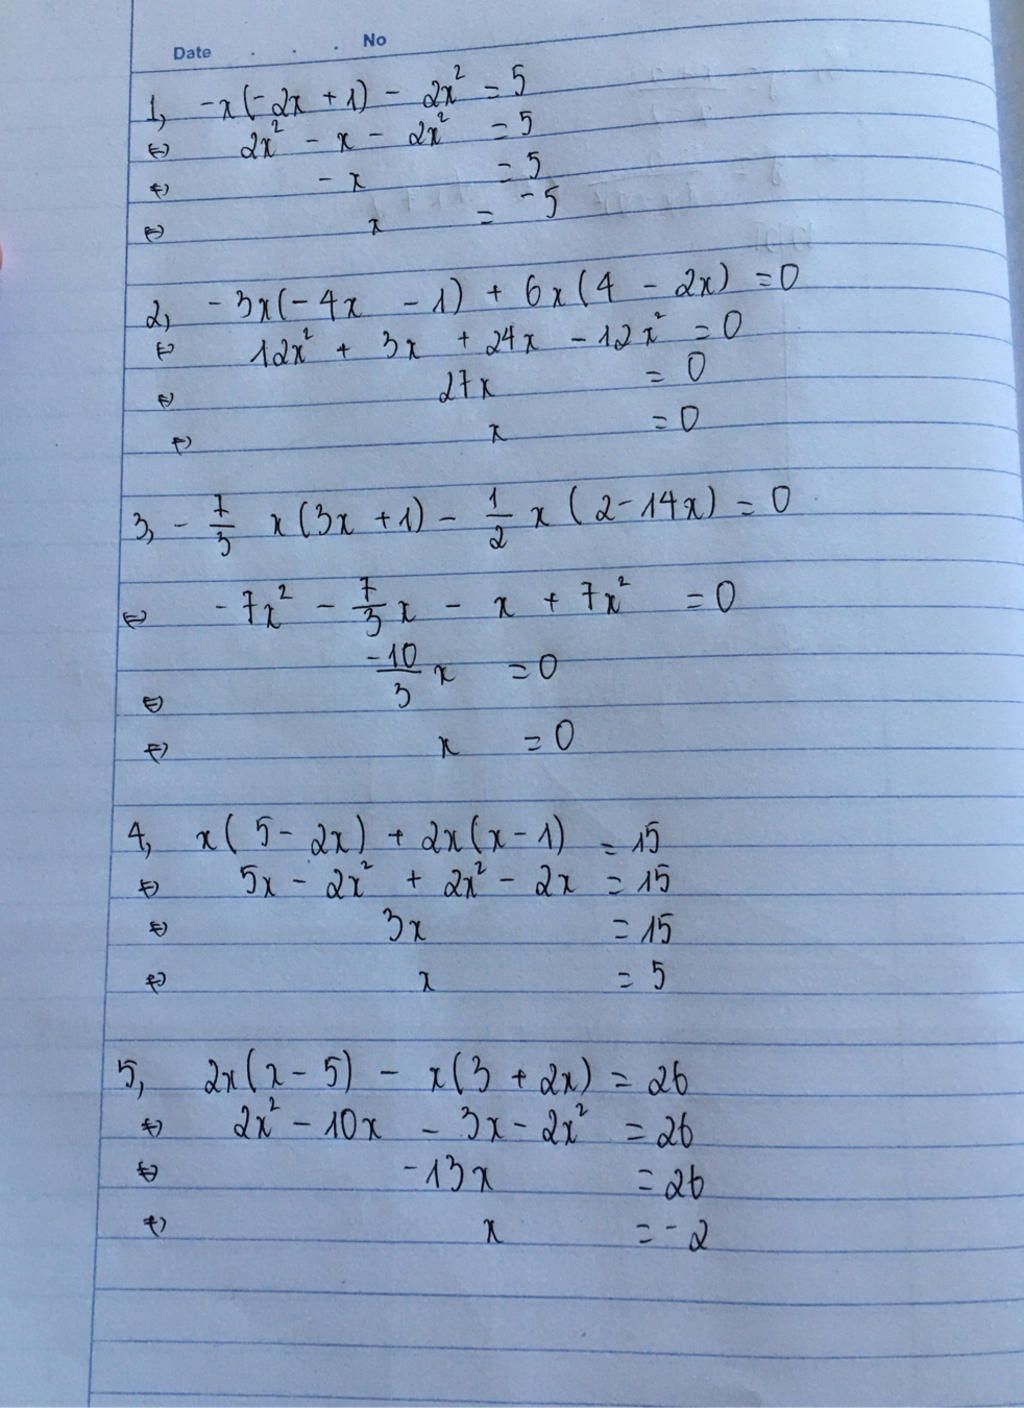 Date . . . No
1, -x(-2x + 1) - 2x² = 5
⇔ 2x² - x - 2x² = 5
⇔ - x = 5
⇔ x = -5
2, -3x(-4x - 1) + 6x(4 - 2x) = 0
⇔ 12x² + 3x + 24x - 12x² = 0
⇔ 27x = 0
⇔ x = 0
3, - 7/3 x(3x + 1) - 1/2 x (2 - 14x) = 0
⇔ -7x² - 7/3 x - x + 7x² = 0
⇔ -10/3 x = 0
⇔ x = 0
4, x(5 - 2x) + 2x(x - 1) = 15
⇔ 5x - 2x² + 2x² - 2x = 15
⇔ 3x = 15
⇔ x = 5
5, 2x(x - 5) - x(3 + 2x) = 26
⇔ 2x² - 10x - 3x - 2x² = 26
⇔ -13x = 26
⇔ x = -2